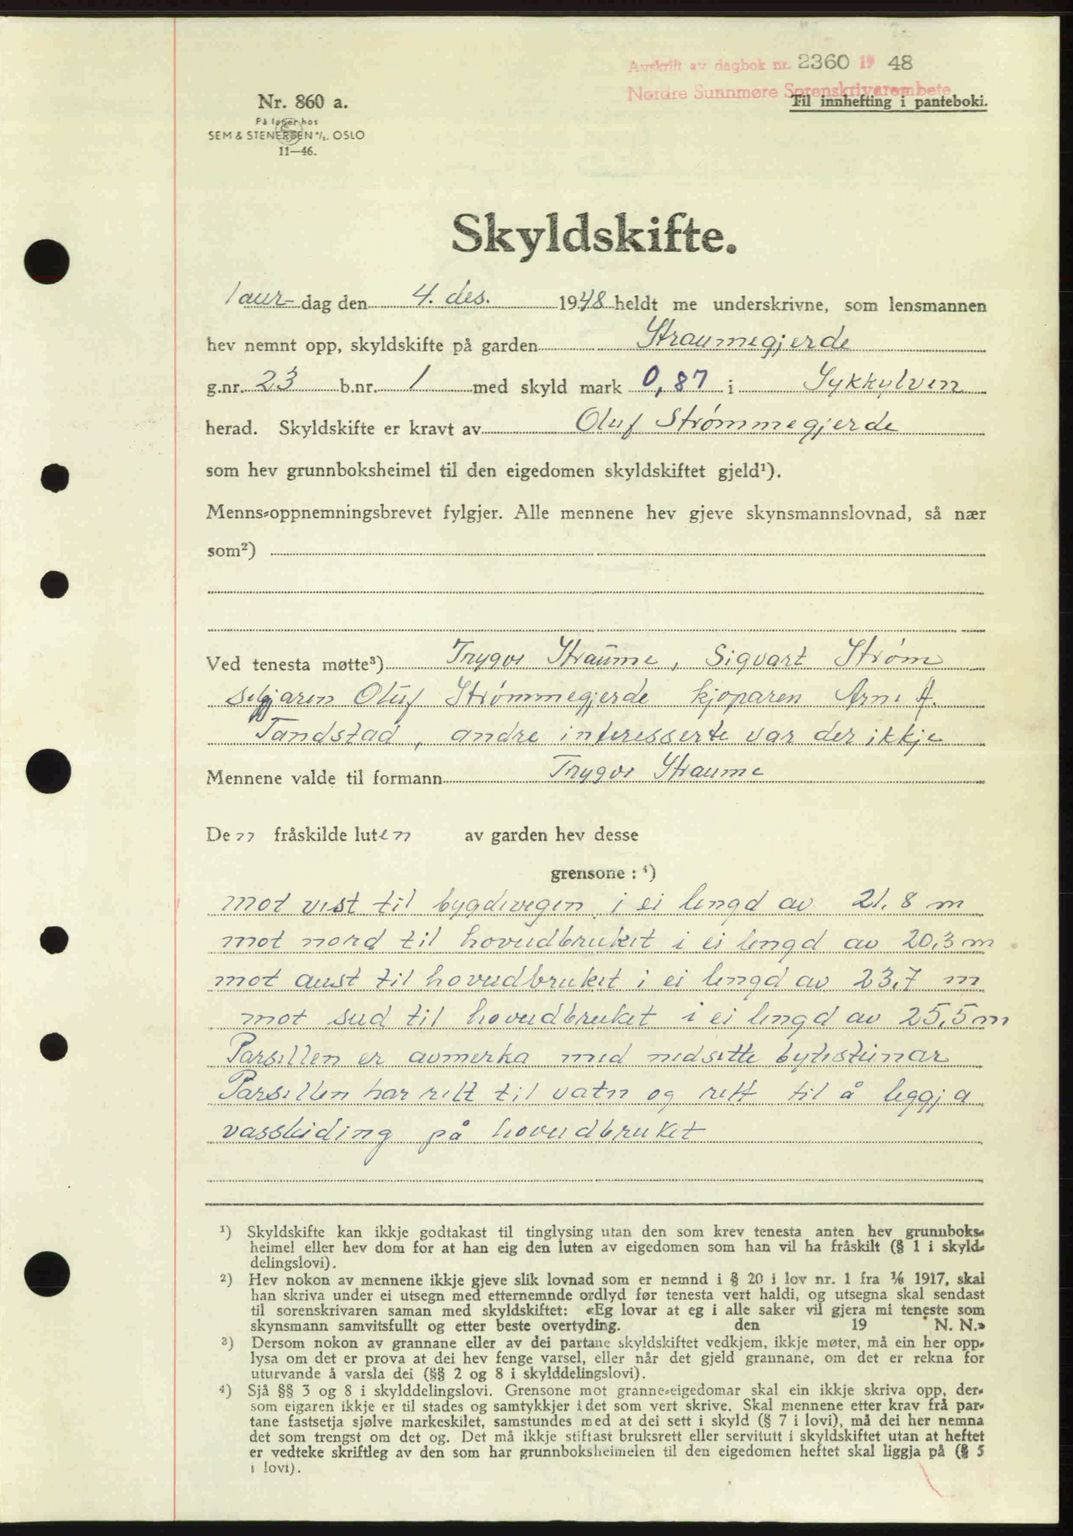 Avskrift av dagbok nr. 2360 19 48
Nordre Sunnmøre Sorenskrivarembete
Til innhefting i panteboki.
Nr. 860 a.
På lager hos
SEM & STENERSEN A/S. OSLO
11—46.
Skyldskifte.
laur- dag den 4. des. 1948 heldt me underskrivne, som lensmannen
hev nemnt opp, skyldskifte på garden Straumegjerde
g.nr. 23 b.nr. 1 med skyld mark 0,87 i Sykkylven
herad. Skyldskifte er kravt av Oluf Strømmegjerde
som hev grunnboksheimel til den eigedomen skyldskiftet gjeld¹).
Menns-oppnemningsbrevet fylgjer. Alle mennene hev gjeve skynsmannslovnad, så nær
som²)
Ved tenesta møtte³) Trygve Straume, Sigvart Strøm
seljaren Oluf Strømmegjerde kjøparen Arne A.
Tandstad, andre interesserte var der ikkje
Mennene valde til formann Trygve Straume
Den fråskilde luten av garden hev desse
grensone : ⁴)
mot vest til bygdevegen i ei lengd av 21.8 m
mot nord til hovudbruket i ei lengd av 20,3 m
mot aust til hovudbruket i ei lengd av 23,7 m
mot sud til hovudbruket i ei lengd av 25,5 m
Parsellen er avmerka med nedsette bytesteinar
Parsellen har rett til vatn og rett til å leggja
vassleiding på hovudbruket
¹) Skyldskifte kan ikkje godtakast til tinglysing utan den som krev tenesta anten hev grunnboks-
heimel eller hev dom for at han eig den luten av eigedomen som han vil ha fråskilt (§ 1 i skyld-
delingslovi).
²) Hev nokon av mennene ikkje gjeve slik lovnad som er nemnd i § 20 i lov nr. 1 fra 1/6 1917, skal
han skriva under ei utsegn med etternemnde ordlyd før tenesta vert haldi, og utsegna skal sendast
til sorenskrivaren saman med skyldskiftet: «Eg lovar at eg i alle saker vil gjera mi teneste som
skynsmann samvitsfullt og etter beste overtyding. den 19 N. N.»
³) Dersom nokon av grannane eller av dei partane skyldskiftet vedkjem, ikkje møter, må ein her opp-
lysa om det er prova at dei hev fenge varsel, eller når det gjeld grannane, om det er rekna for
uturvande å varsla dei (§§ 2 og 8 i skylddelingslovi).
⁴) Sjå §§ 3 og 8 i skylddelingslovi. Grensone mot granne-eigedomar skal ein ikkje skriva opp, der-
som eigaren ikkje er til stades og samtykkjer i det som vert skrive. Skal mennene etter krav frå par-
tane fastsetja sjølve markeskilet, samstundes med at dei sett i skyld (§ 7 i lovi), må dei her nemna
det som trengst om det og. Det må ikkje stiftast bruksrett eller servitutt i skyldskiftet utan at heftet
er vedteke skriftleg av den som har grunnboksheimelen til den eigedomen heftet skal liggja på (§ 5
i lovi).